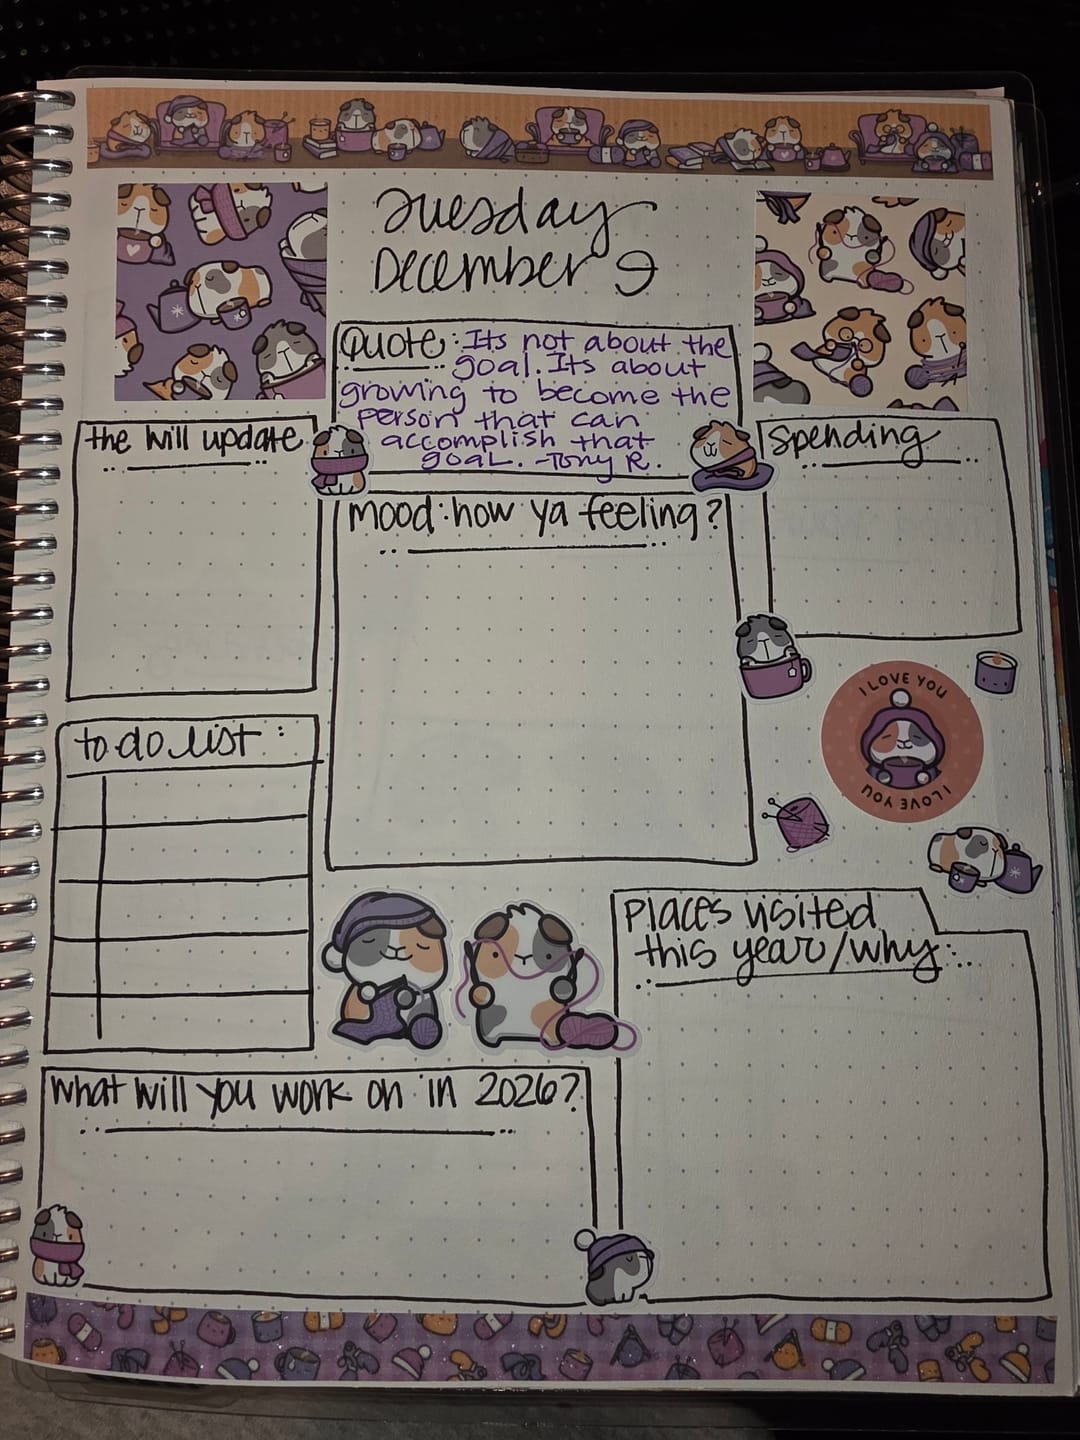 Tuesday
December 9
Quote: Its not about the
goal. Its about
growing to become the
person that can
accomplish that
goal. -Tony R.
the will update
Spending
mood: how ya feeling?
I LOVE YOU
I LOVE YOU
to do list:
Places visited
this year/why:
What will you work on in 2026?